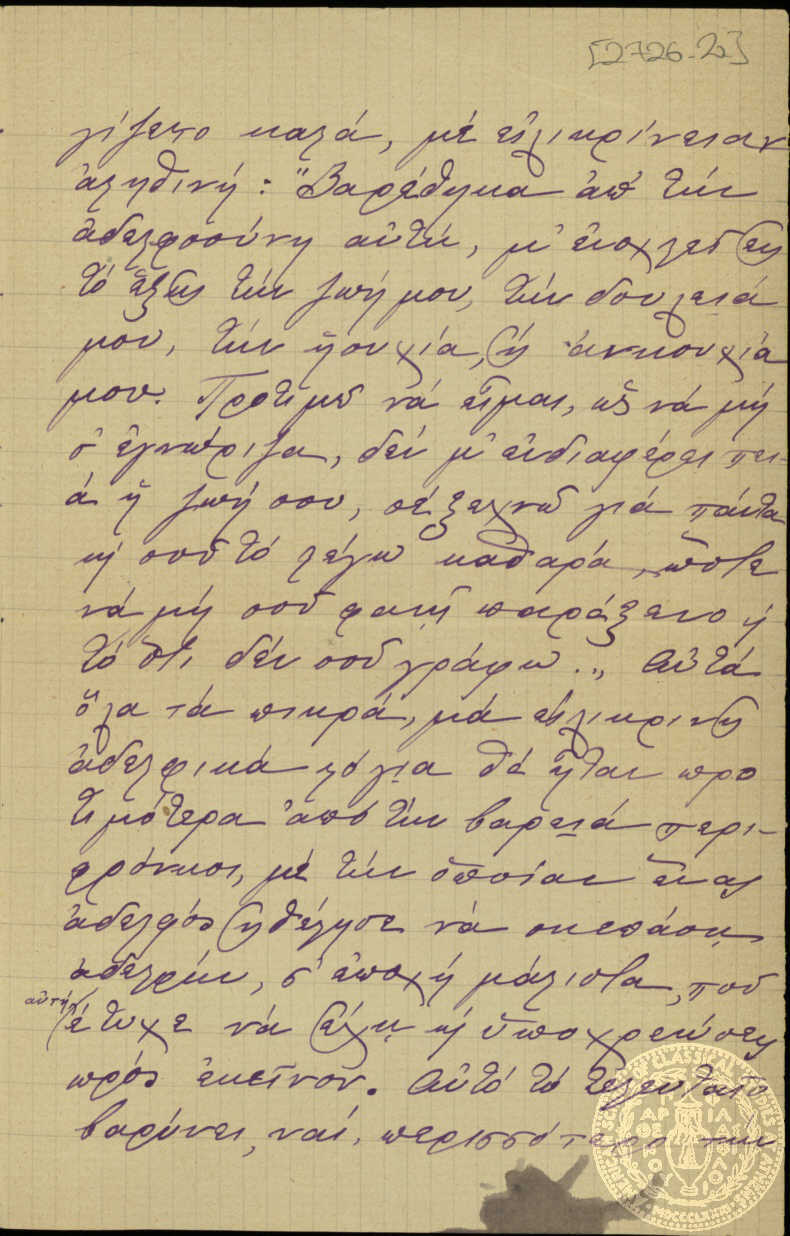 [2726-2]
γίζετο καλά, μέ εἰλικρίνειαν
ἀληθινή: "Βαρέθηκα ἀπ' τήν
ἀδελφοσύνη αὐτή, μ' ἐνοχλεῖς εἰς
τό ἑξῆς τήν ζωή μου, τήν δουλειά
μου, τήν ἡσυχία, ἤ ἀνησυχία
μου. Προτιμῶ νά εἶμαι, ὡς νά μή
σ' ἐγνώρισα, δέν μ' ἐνδιαφέρει πει-
ά ἡ ζωή σου, σέ ξεχνῶ γιά πάντα
κή σοῦ τό λέγω καθαρά, ὥστε
νά μή σοῦ φανῇ παράξενο ἤ
τό ὅτι δέν σοῦ γράφω.„ Αὐτά
ὅλα τά πικρά, μά εἰλικρινῆ
ἀδελφικά λόγια θά ἦταν προ
τιμότερα ἀπό τήν βαρειά περι-
φρόνησι, μέ τήν ὁποίαν ἕνας
ἀδελφός ἠθέλησε νά σκεπάσῃ
ἀδελφήν, σ' ἐποχή μάλιστα, πού
αὐτή
ἔτυχε νά ἔχῃ κή ὑποχρεώσεις
πρός ἐκεῖνον. Αὐτό τό τελευταῖο
βαρύνει, ναί, περισσότερο τήν